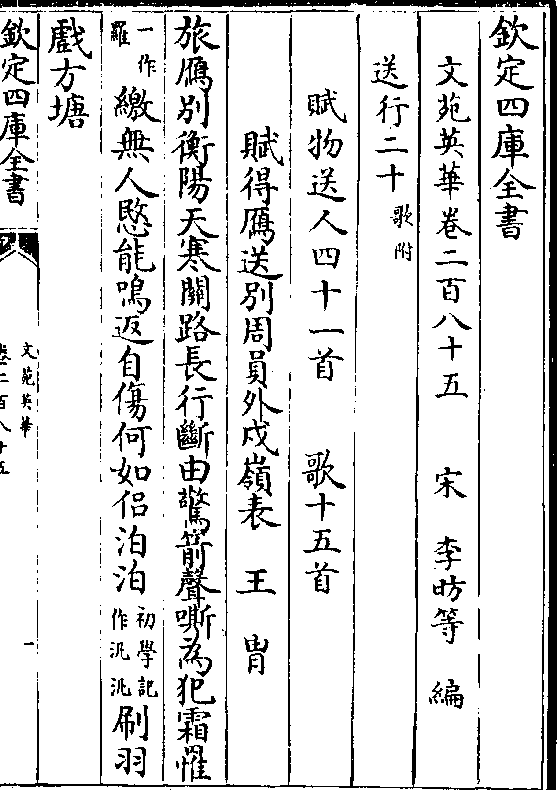 欽定四庫全書
文苑英華卷二百八十五 宋 李昉等 編
送行二十 歌附
賦物送人四十一首 歌十五首
賦得鴈送別周員外戍嶺表 王 胄
旅鴈別衡陽天寒關路長行斷由驚箭聲嘶為犯霜懼
一作羅繳無人愍能鳴返自傷何如侶泊泊初學記作汎汎刷羽
戲方塘
欽定四庫全書
文苑英華
卷二百八十五
一